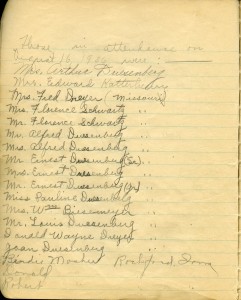 Those in attendance on
August 16, 1936 were:
Mrs. Arthur Duesenberg
Mrs. Edward
Mrs. Fred Dreyer (Missouri)
Mrs. Florence Schwartz "
Mr. Florence Schwartz "
Mr. Alfred Duesenberg "
Mrs. Alfred Duesenberg "
Mr. Ernest Duesenberg (Sr.) "
Mrs. Ernest Duesenberg "
Mr. Ernest Duesenberg (Jr.) "
Miss Pauline Duesenberg "
Mrs. Wm. "
Mr. Louis Duesenberg "
Donald Wayne Dreyer "
Joan Duesenberg "
Rockford, Iowa
Donald "
Robert "